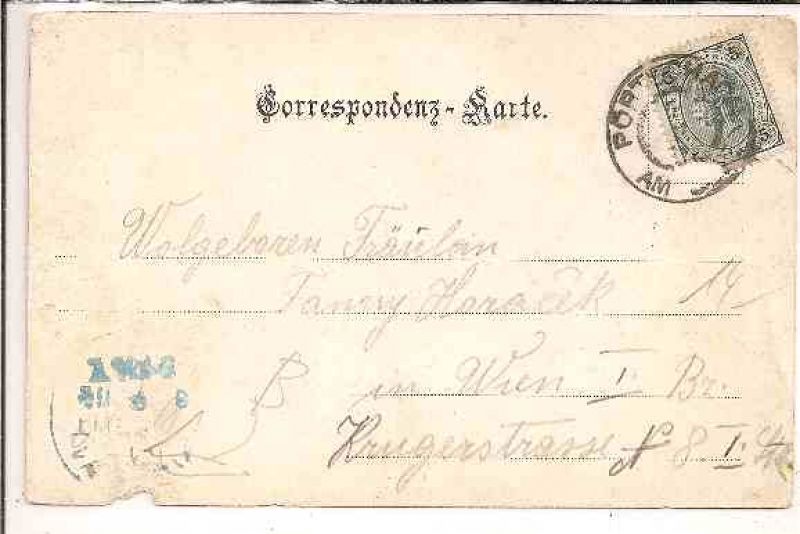 Correspondenz-Karte.
PÖRTSCHA
AM
Wolgeboren Fräulein
Fanny Horaček
14
in Wien I. Bz.
Krugerstrasse N 8 I.